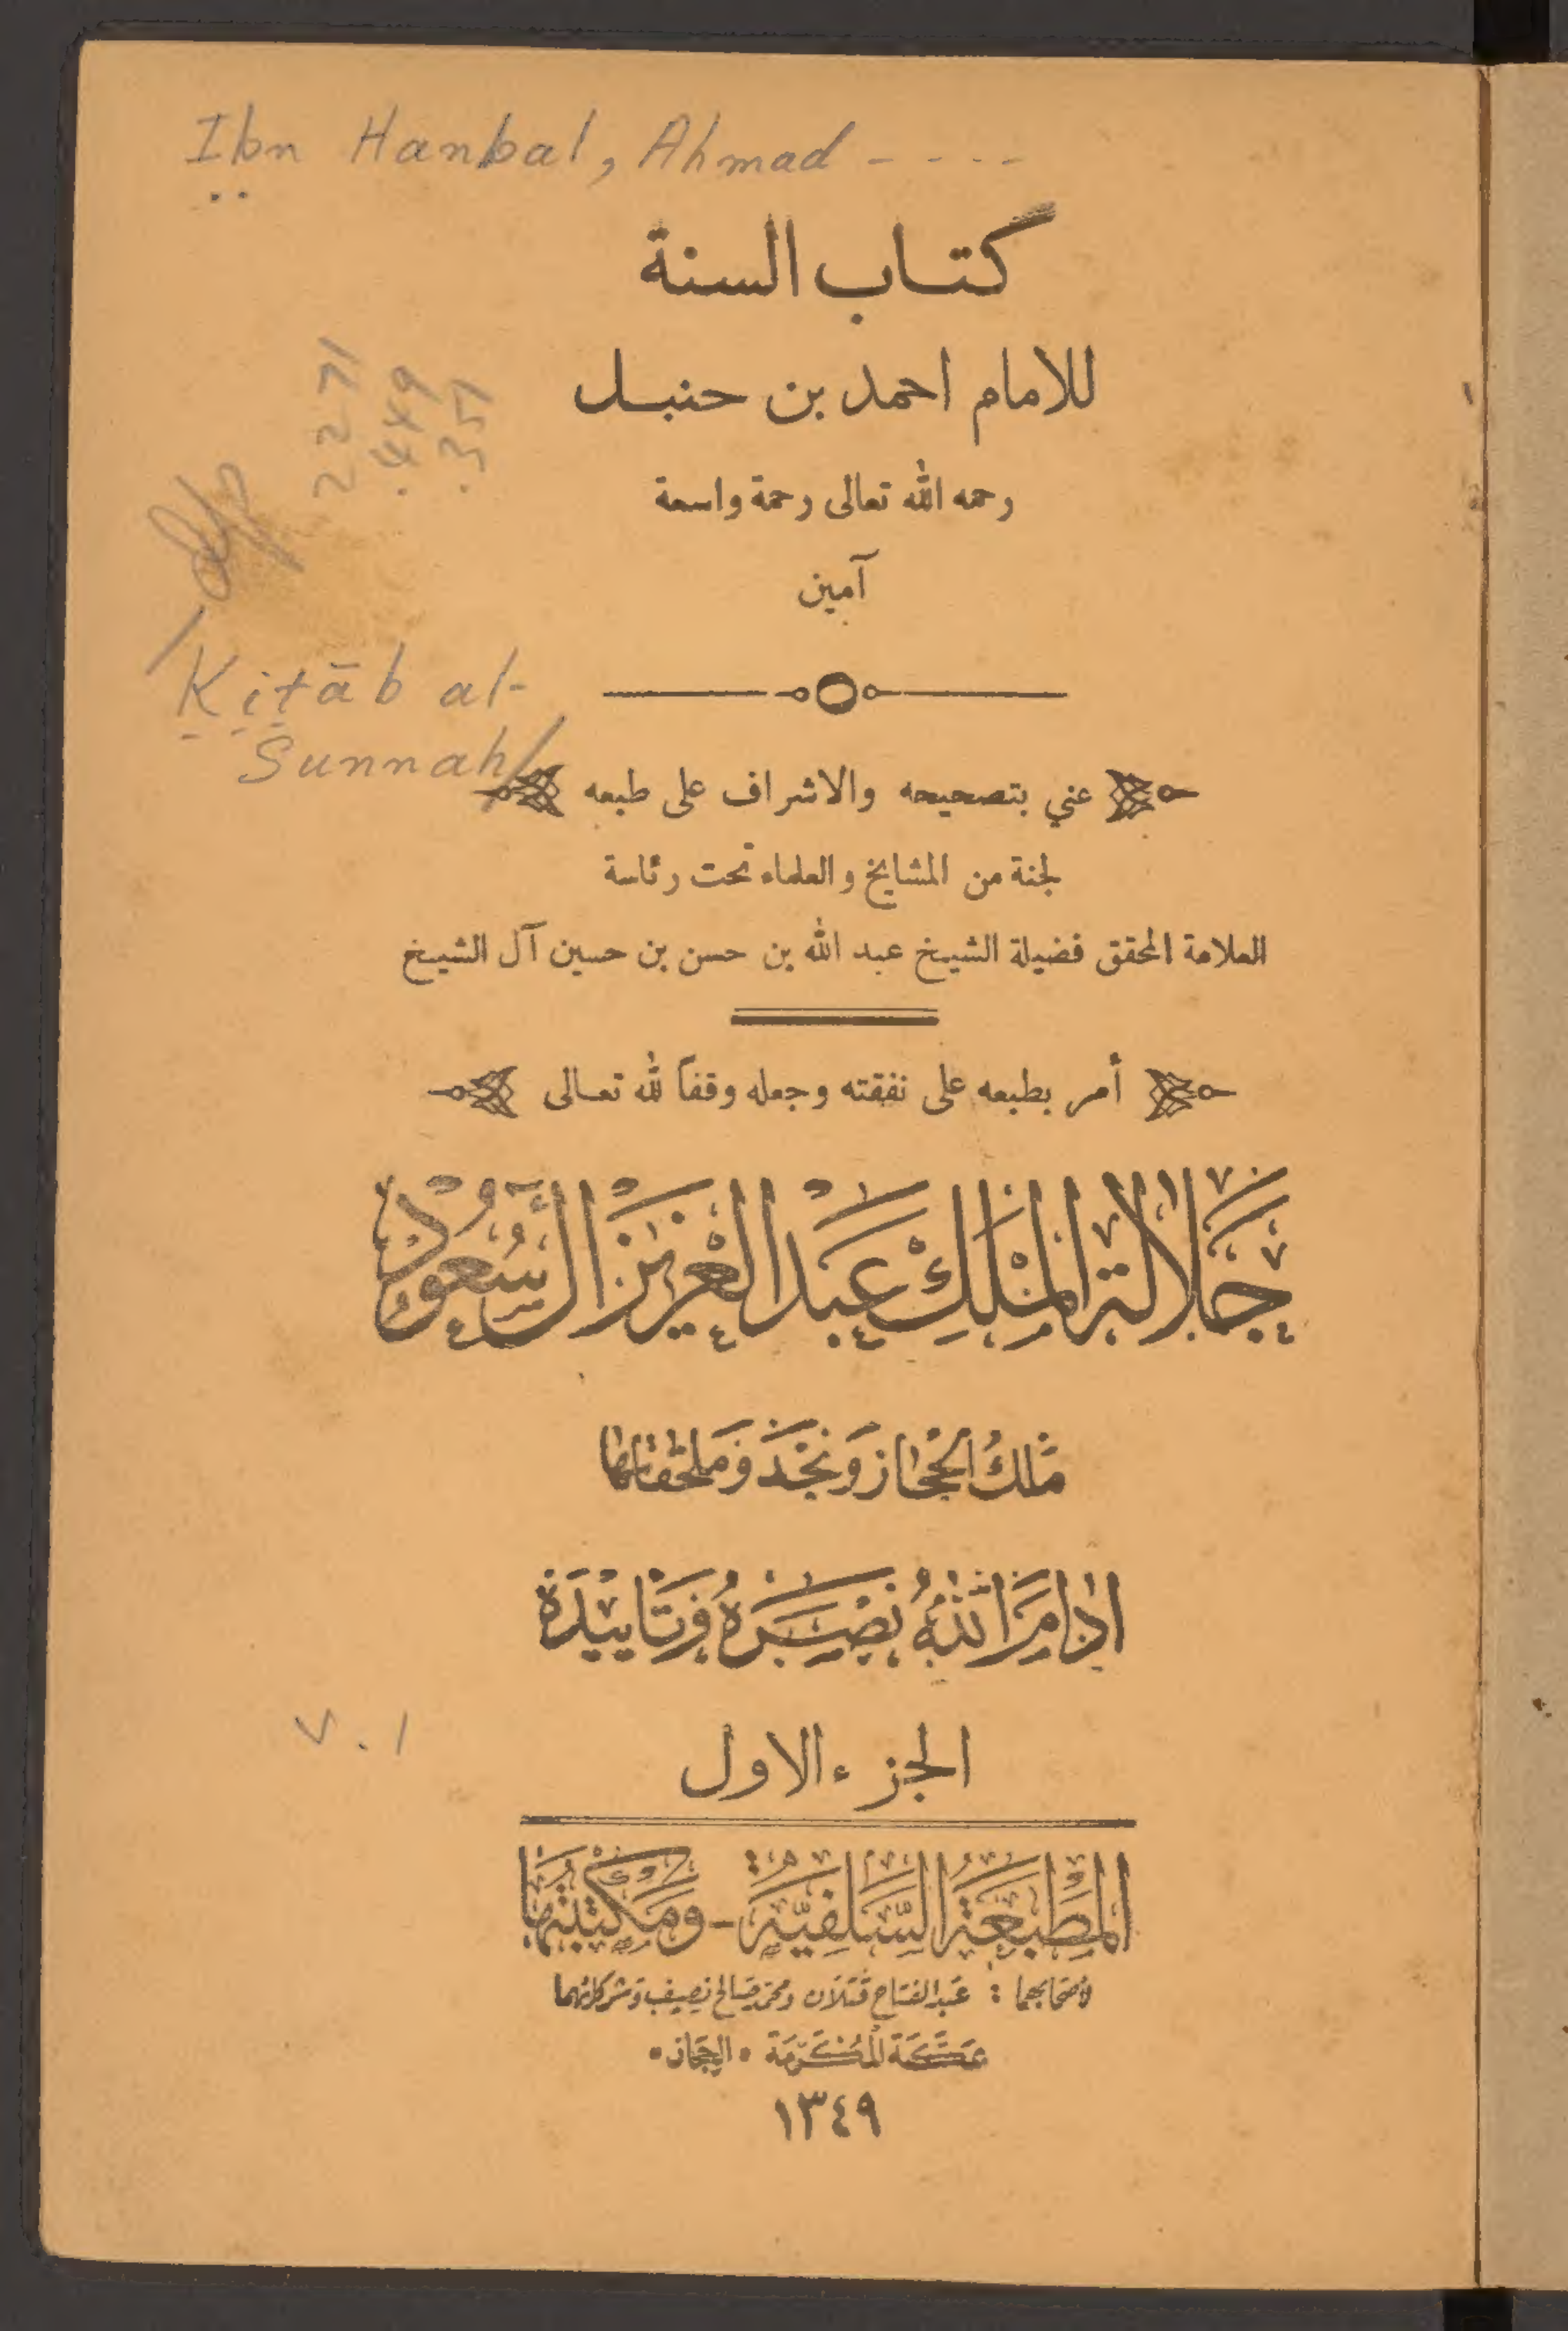 Ibn Hanbal, Ahmad - - - -
كتاب السنة
للامام احمد بن حنبل
رحمه الله تعالى رحمة واسعة
آمين
2271
.449
.351
Kitāb al-
Sunnah/
عني بتصحيحه والاشراف على طبعه
لجنة من المشايخ والعلماء تحت رئاسة
العلامة المحقق فضيلة الشيخ عبد الله بن حسن بن حسين آل الشيخ
أمر بطبعه على نفقته وجعله وقفاً لله تعالى
جلالة الملك عبد العزيز آل سعود
ملك الحجاز ونجد وملحقاتها
ادام الله نصره وتاييده
v.1
الجزء الاول
المطبعة السلفية - ومكتبتها
لأصحابهما : عبد الفتاح قتلان ومحمد صالح نصيف وشركائهما
بمكة المكرمة • الحجاز •
١٣٤٩